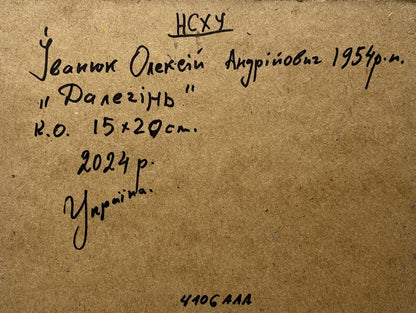 НСХУ
Іванюк Олексій Андрійович 1954р.н.
„Далегінь"
к.о. 15x20см.
2024р.
Україна.
4106ААА